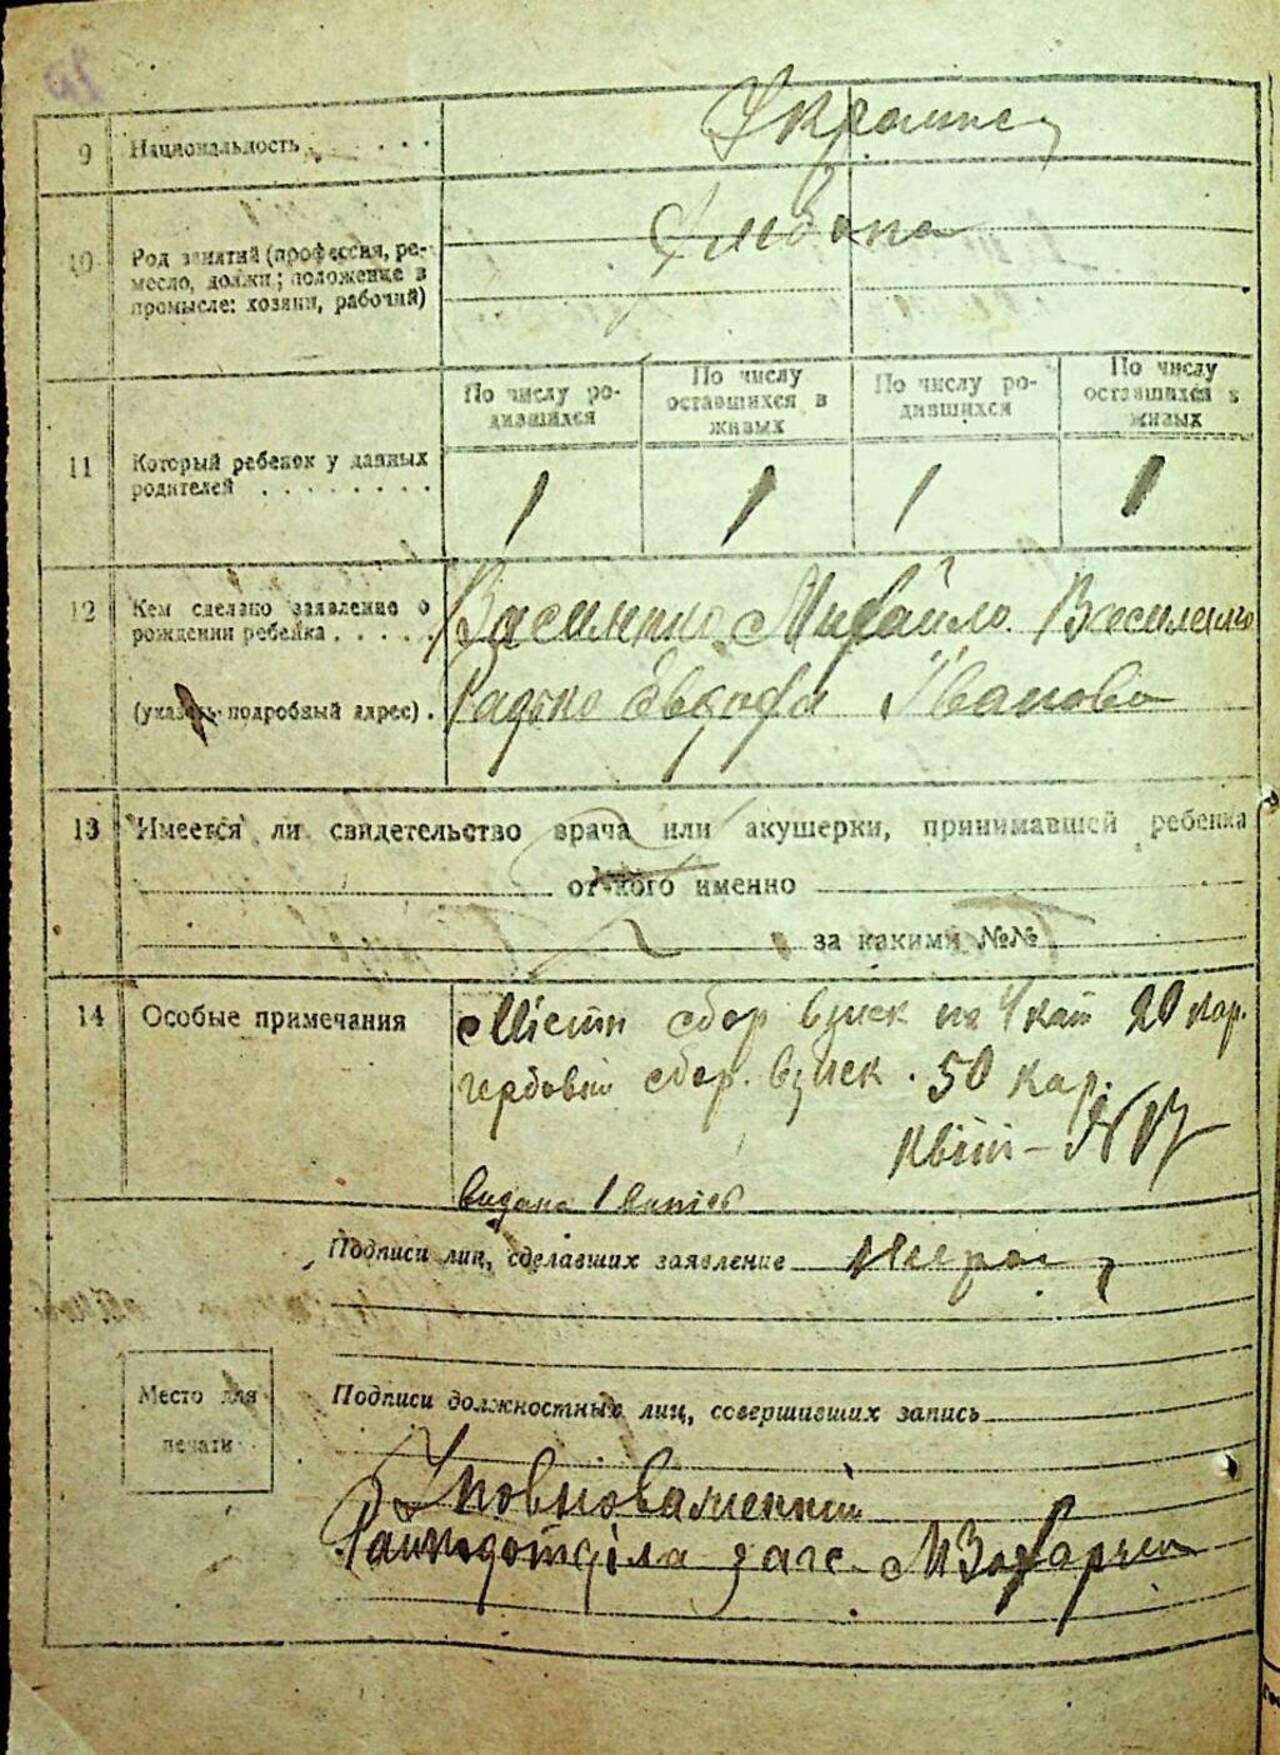 9 Национальность . . . .
Украинец
10 Род занятий (профессия, ре-
месло, должн.; положение в
промысле: хозяин, рабочий)
По числу ро-
дившихся
По числу
оставшихся в
живых
По числу ро-
дившихся
По числу
оставшихся в
живых
11 Который ребенок у данных
родителей . . . . . . . .
1 1 1 1
12 Кем сделано заявление о
рождении ребенка . . . . .
Василенко Михайло Василенко
(указать подробный адрес) .
Радько Ивановa
13 Имеется ли свидетельство врача или акушерки, принимавшей ребенка
от кого именно
за какими №№
14 Особые примечания
Містн сбор взиск по 4 кат 20 кар.
гербовый сбор. взиск . 50 кар.
Квит - №
видана 1
Подписи лиц, сделавших заявление
Место для
печати
Подписи должностных лиц, совершивших запись
Уповноваженний
загс М Захарчен